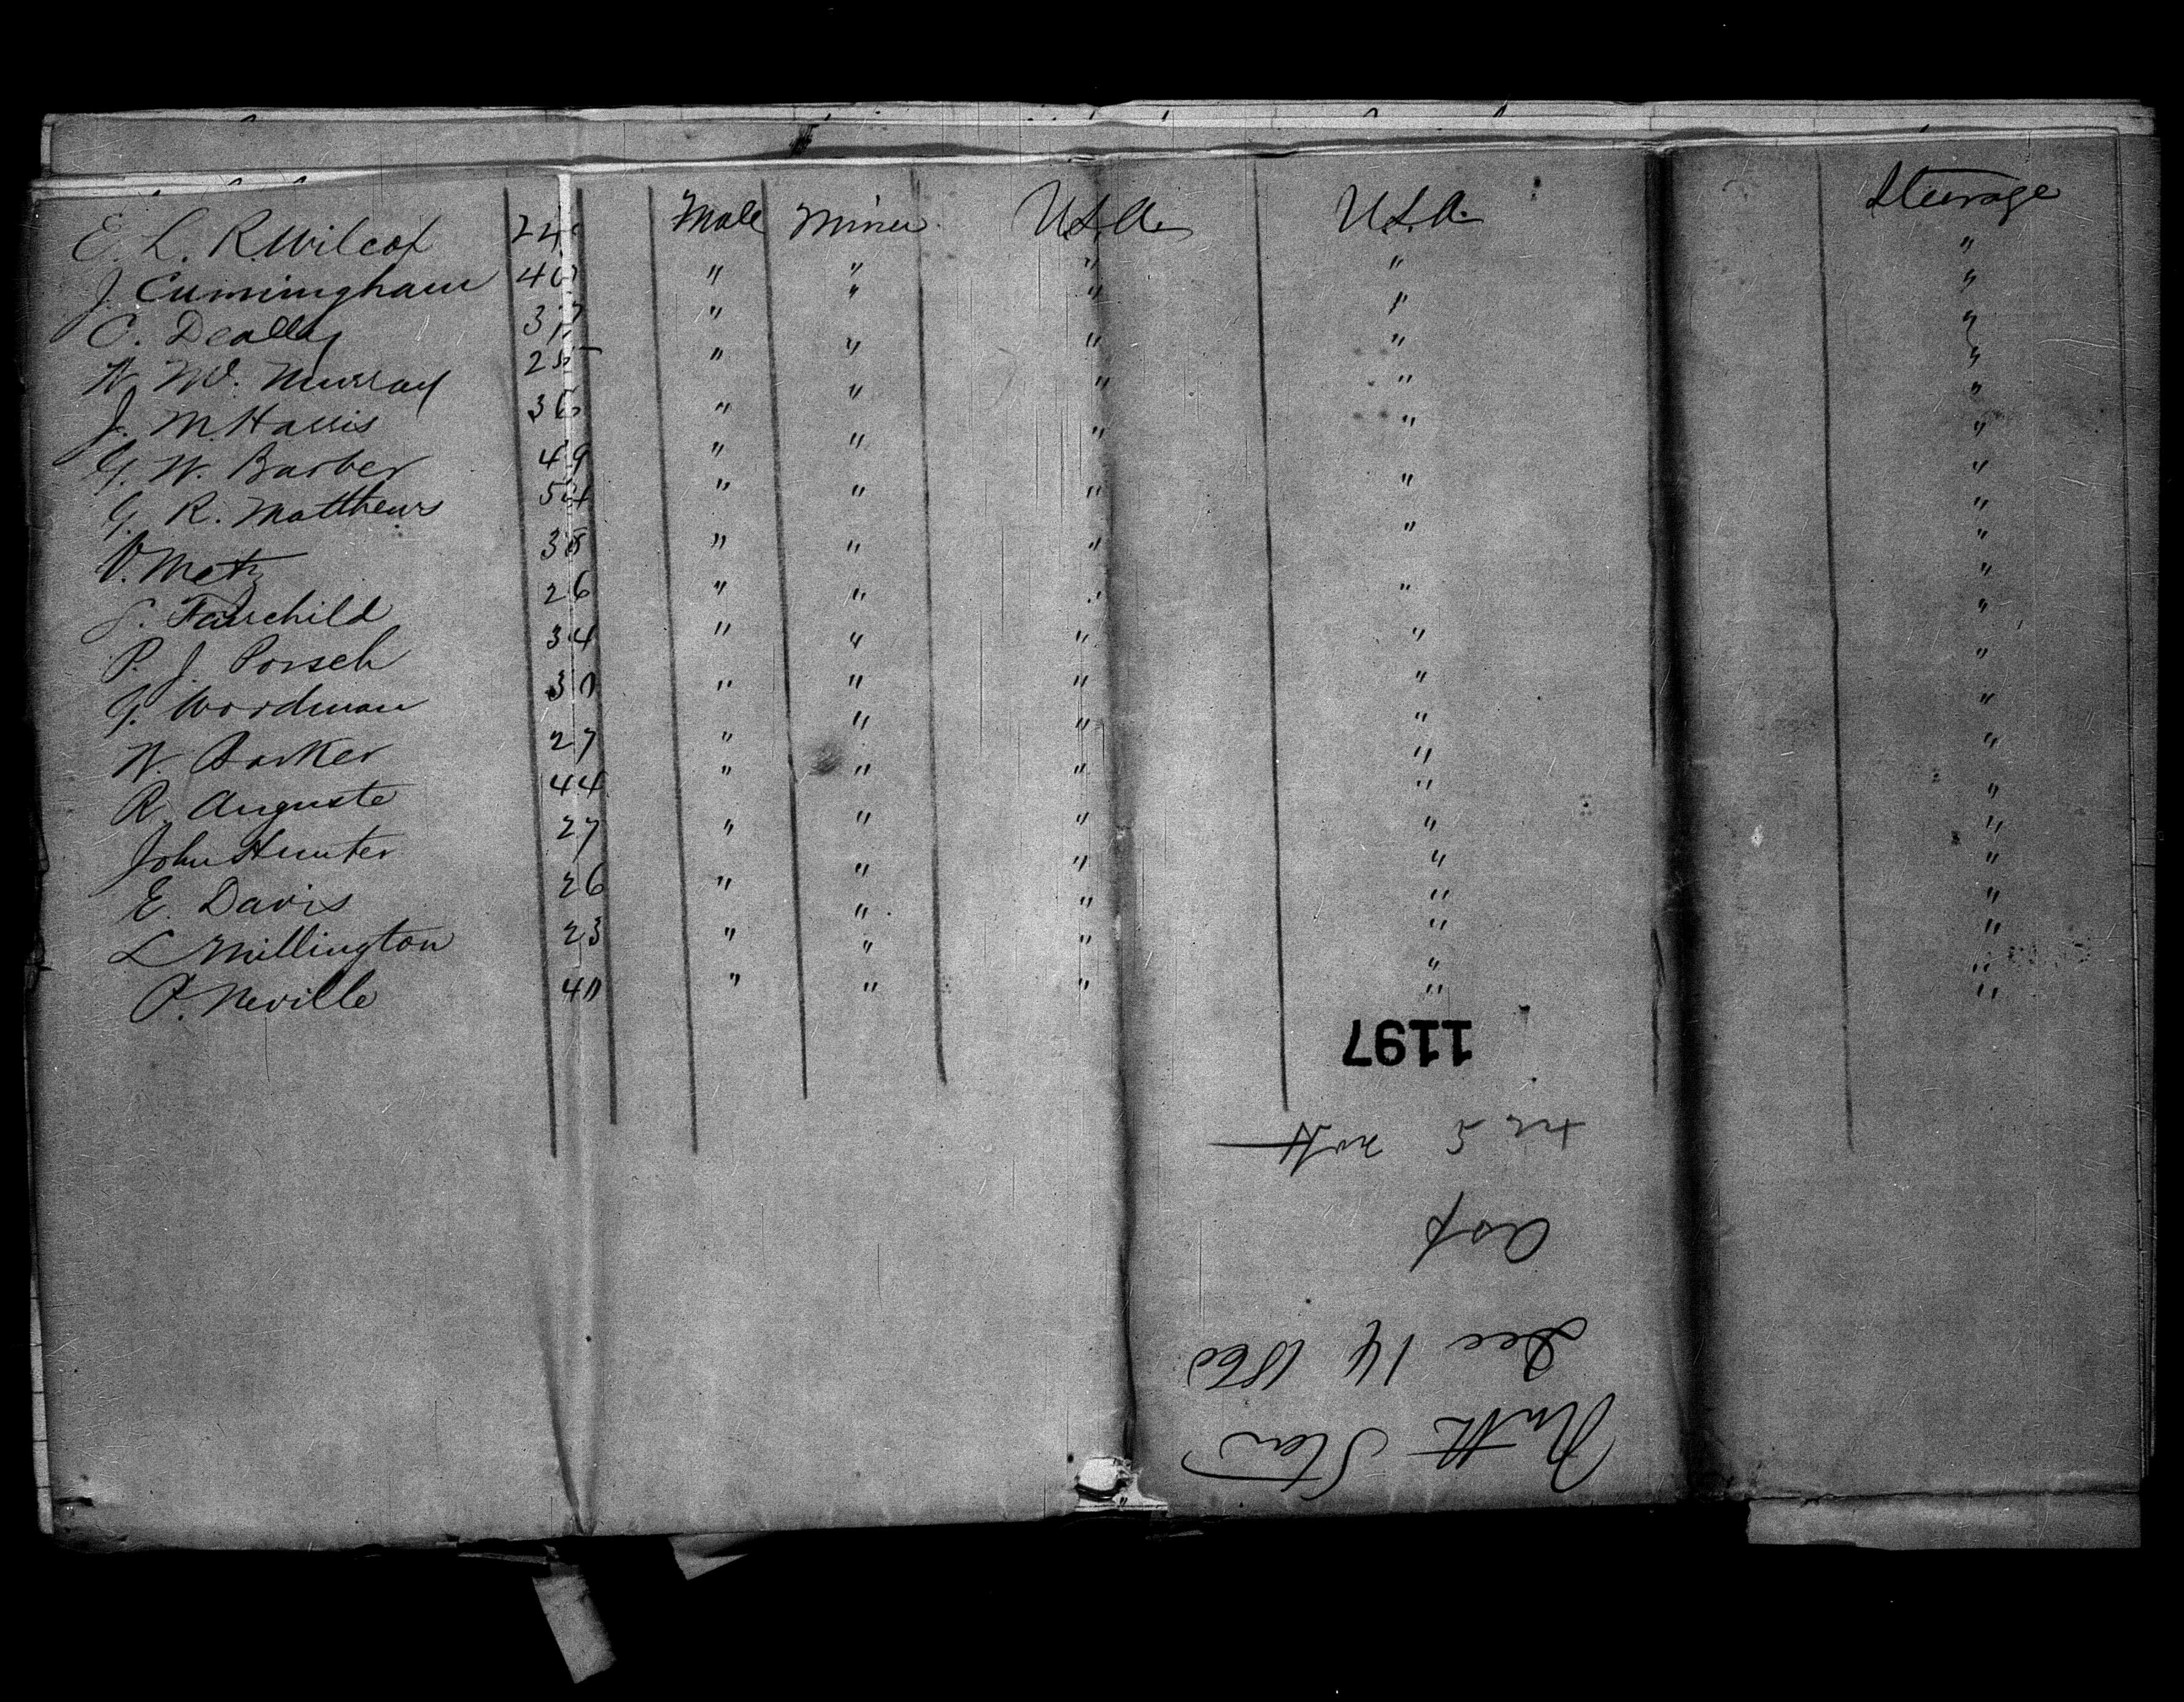 E. L. R. Wilcox 24 Male Miner U.S.A. U.S.A. Steerage
J. Cunningham 40 " " " " "
C. Dealey 37 " " " " "
W. W. Murray 25 " " " " "
J. M. Harris 36 " " " " "
G. W. Barber 49 " " " " "
G. R. Matthews 54 " " " " "
V. Metz 38 " " " " "
S. Fairchild 26 " " " " "
P. J. Porsch 34 " " " " "
G. Woodman 30 " " " " "
W. Barker 27 " " " " "
R. Auguste 44 " " " " "
John Hunter 27 " " " " "
E. Davis 26 " " " " "
L Millington 23 " " " " "
P. Neville 40 " " " " "
North Star
Dec 14 1860
Asp
1197